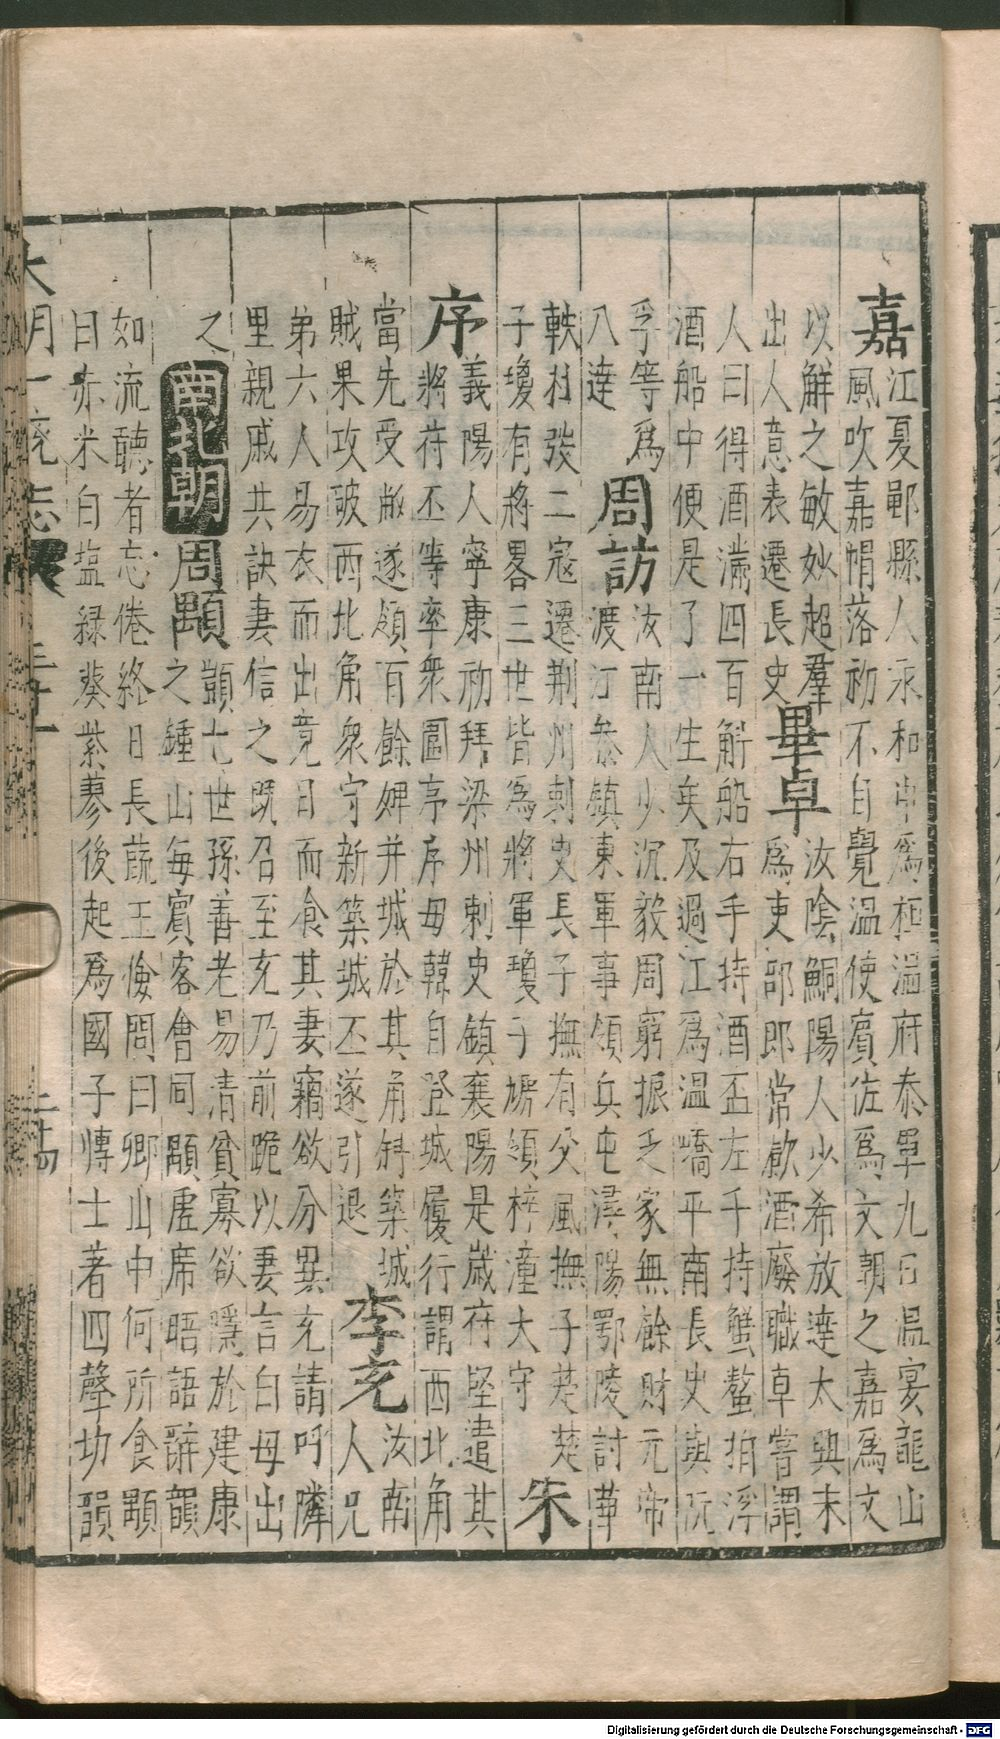 嘉
江夏鄳縣人永和中為桓溫府叅軍九日温宴龍山
風吹嘉帽落初不自覺溫使賓佐為文嘲之嘉為文
以解之敏妙超羣
出人意表遷長史
畢卓
汝陰鮦陽人少希放達太興末
為吏部郎常飲酒廢職卓嘗謂
人曰得酒滿四百斛船右手持酒盃左手持蟹螯拍浮
酒船中便是了一生矣及過江為溫嶠平南長史與阮
孚等為
八達
周訪
汝南人少沉毅周窮振乏家無餘財元帝
渡江叅鎮東軍事領兵屯潯陽鄂陵討華
軼杜弢二寇遷荆州刺史長子撫有父風撫子楚楚
子瓊有將畧三世皆為將軍瓊子虓領梓潼大守
朱序
義陽人寧康初拜梁州刺史鎮襄陽是歲苻堅遣其
將苻丕等率衆圍序序母韓自登城履行謂西北角
當先受敝遂領百餘婢并城於其角斜築城
賊果攻破西北角衆守新築城丕遂引退
李充
汝南
人兄
弟六人易衣而出竟日而食其妻竊欲分異充請呼隣
里親戚共訣妻信之既召至充乃前跪以妻言白母出
之
南北朝
周顒
顗七世孫善老易清貧寡欲隱於建康
之鍾山每賓客會同顒虛席晤語辭韻
如流聽者忘倦終日長蔬王儉問曰卿山中何所食顒
曰赤米白塩緑葵紫蓼後起為國子博士著四聲切韻
大明一統志
二十四
Digitalisierung gefördert durch die Deutsche Forschungsgemeinschaft - DFG